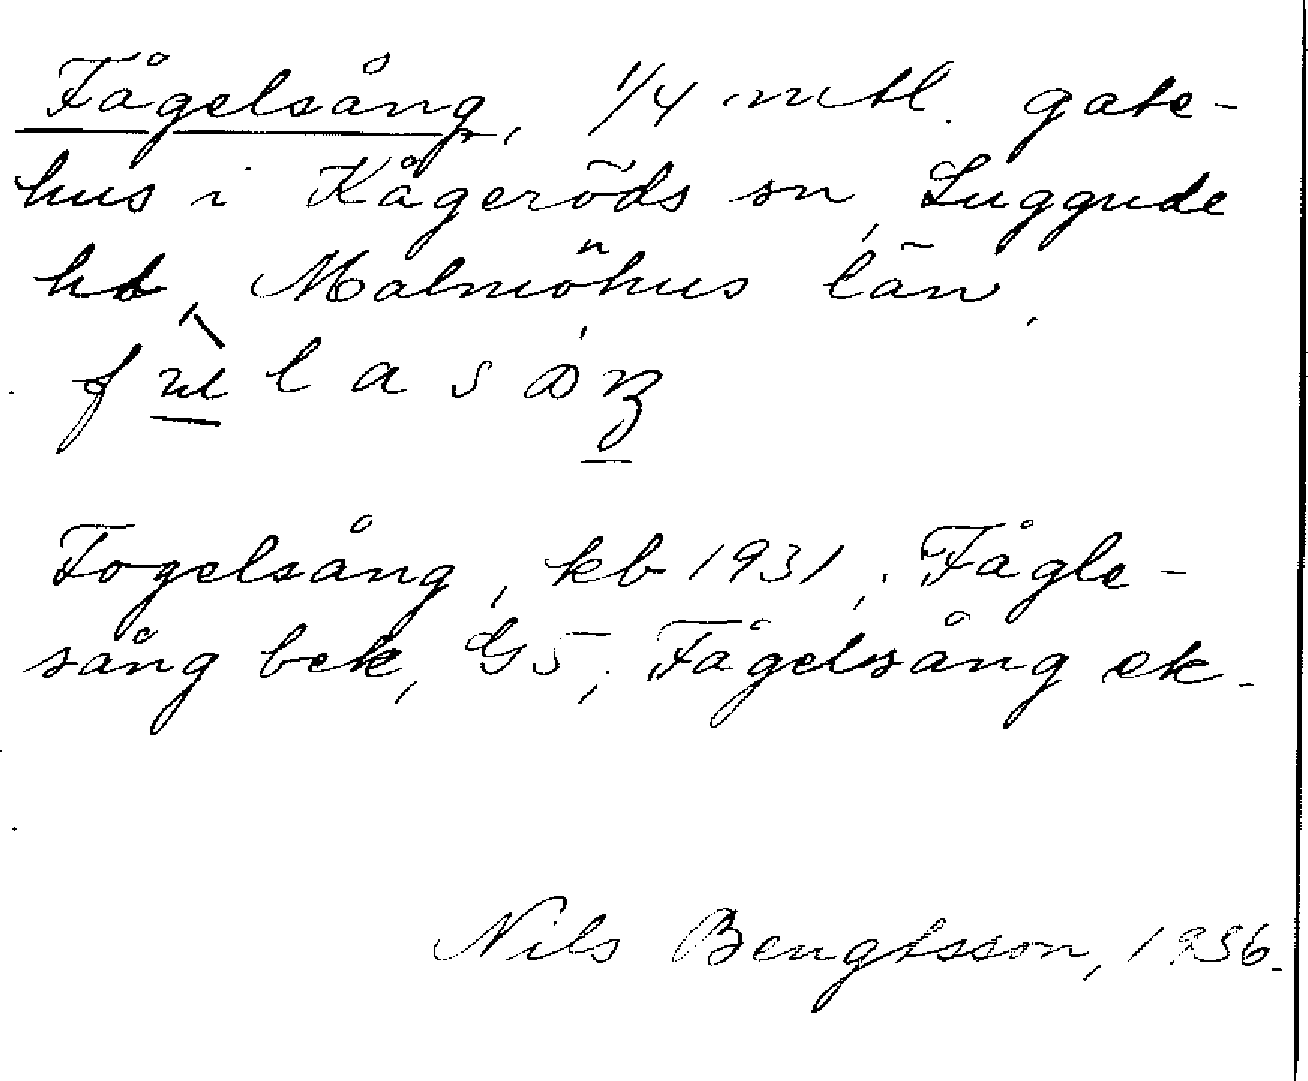 Fågelsång, 1/4 mtl. gate-
hus i Kågeröds sn, Luggude
hd, Malmöhus län.
Fogelsång, kb 1931; Fågle-
sång bek, G5; Fågelsång ek.
Nils Bengtsson, 1936.